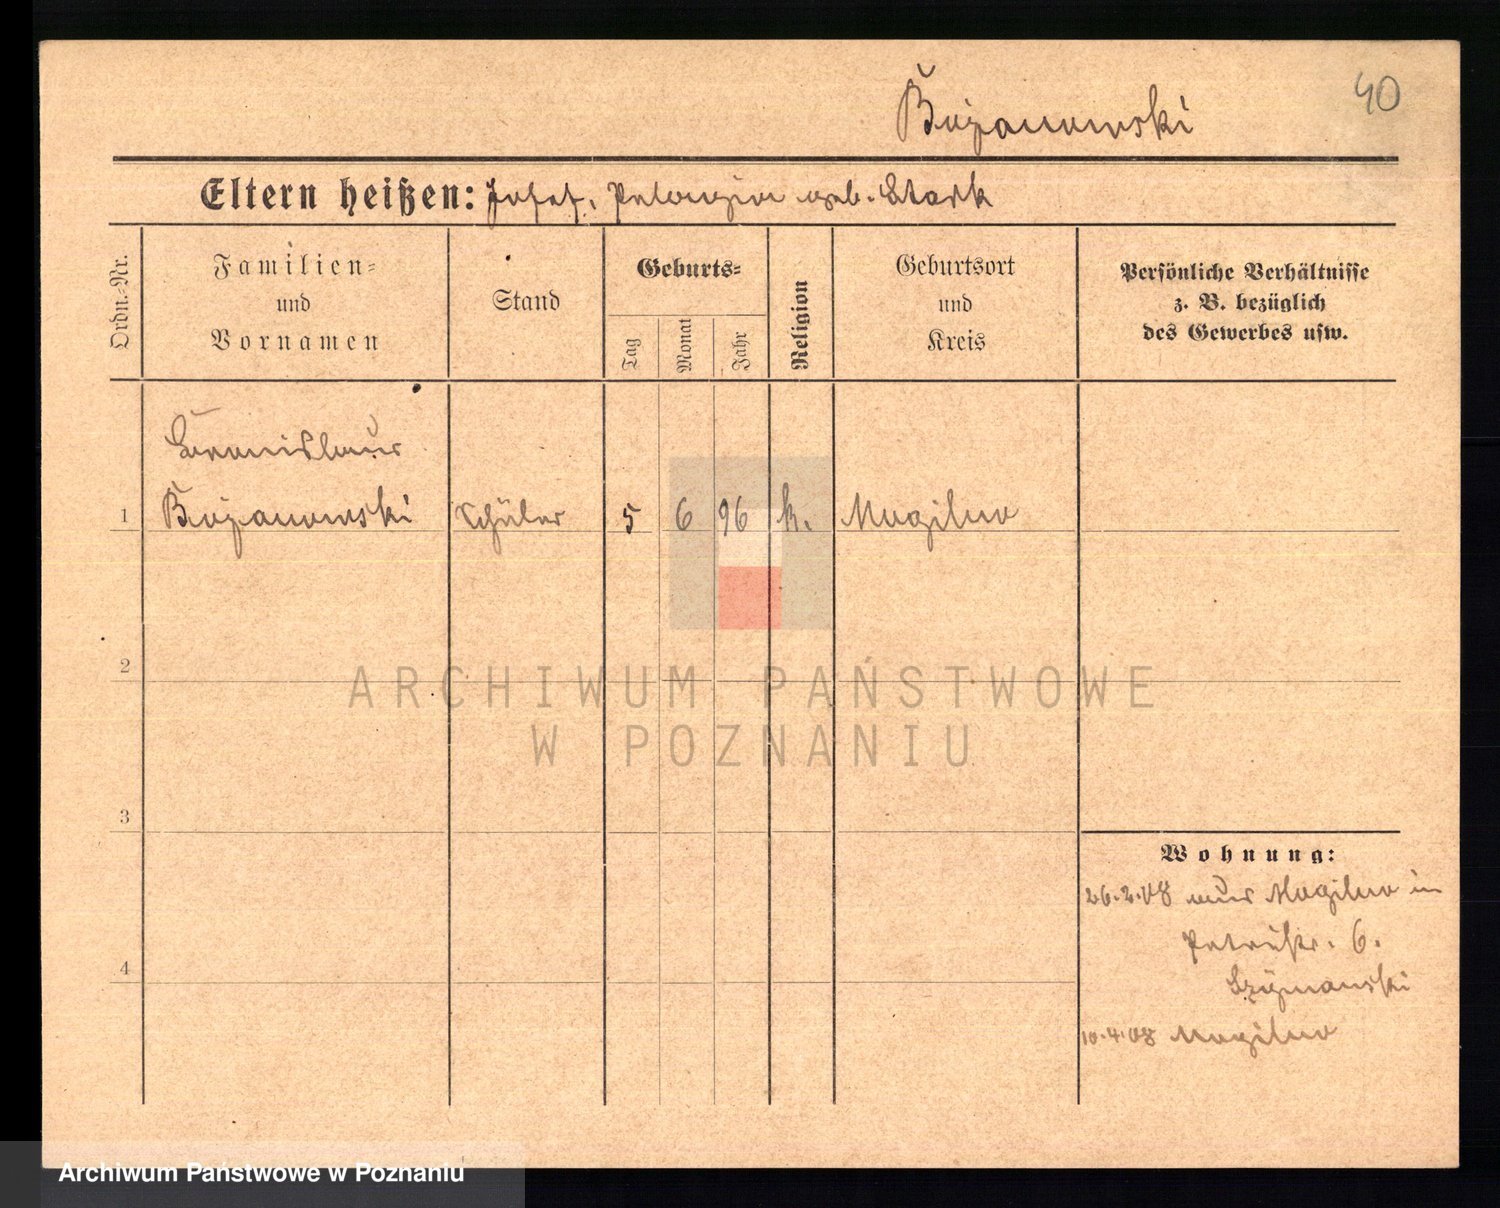 40
Bojanowski
Eltern heißen: Josef, Pelagia geb. Stark
Ordn.-Nr.
Familien-
und
Vornamen
Stand
Geburts-
Tag
Monat
Jahr
Religion
Geburtsort
und
Kreis
Persönliche Verhältnisse
z. B. bezüglich
des Gewerbes usw.
Bronislaus
1 Bojanowski Schüler 5 6 96 k. Mogilno
2
3
4
Wohnung:
26.2.08 aus Mogilno in
Petristr. 6.
Szymanski
10.4.08 Mogilno
ARCHIWUM PAŃSTWOWE
W POZNANIU
Archiwum Państwowe w Poznaniu